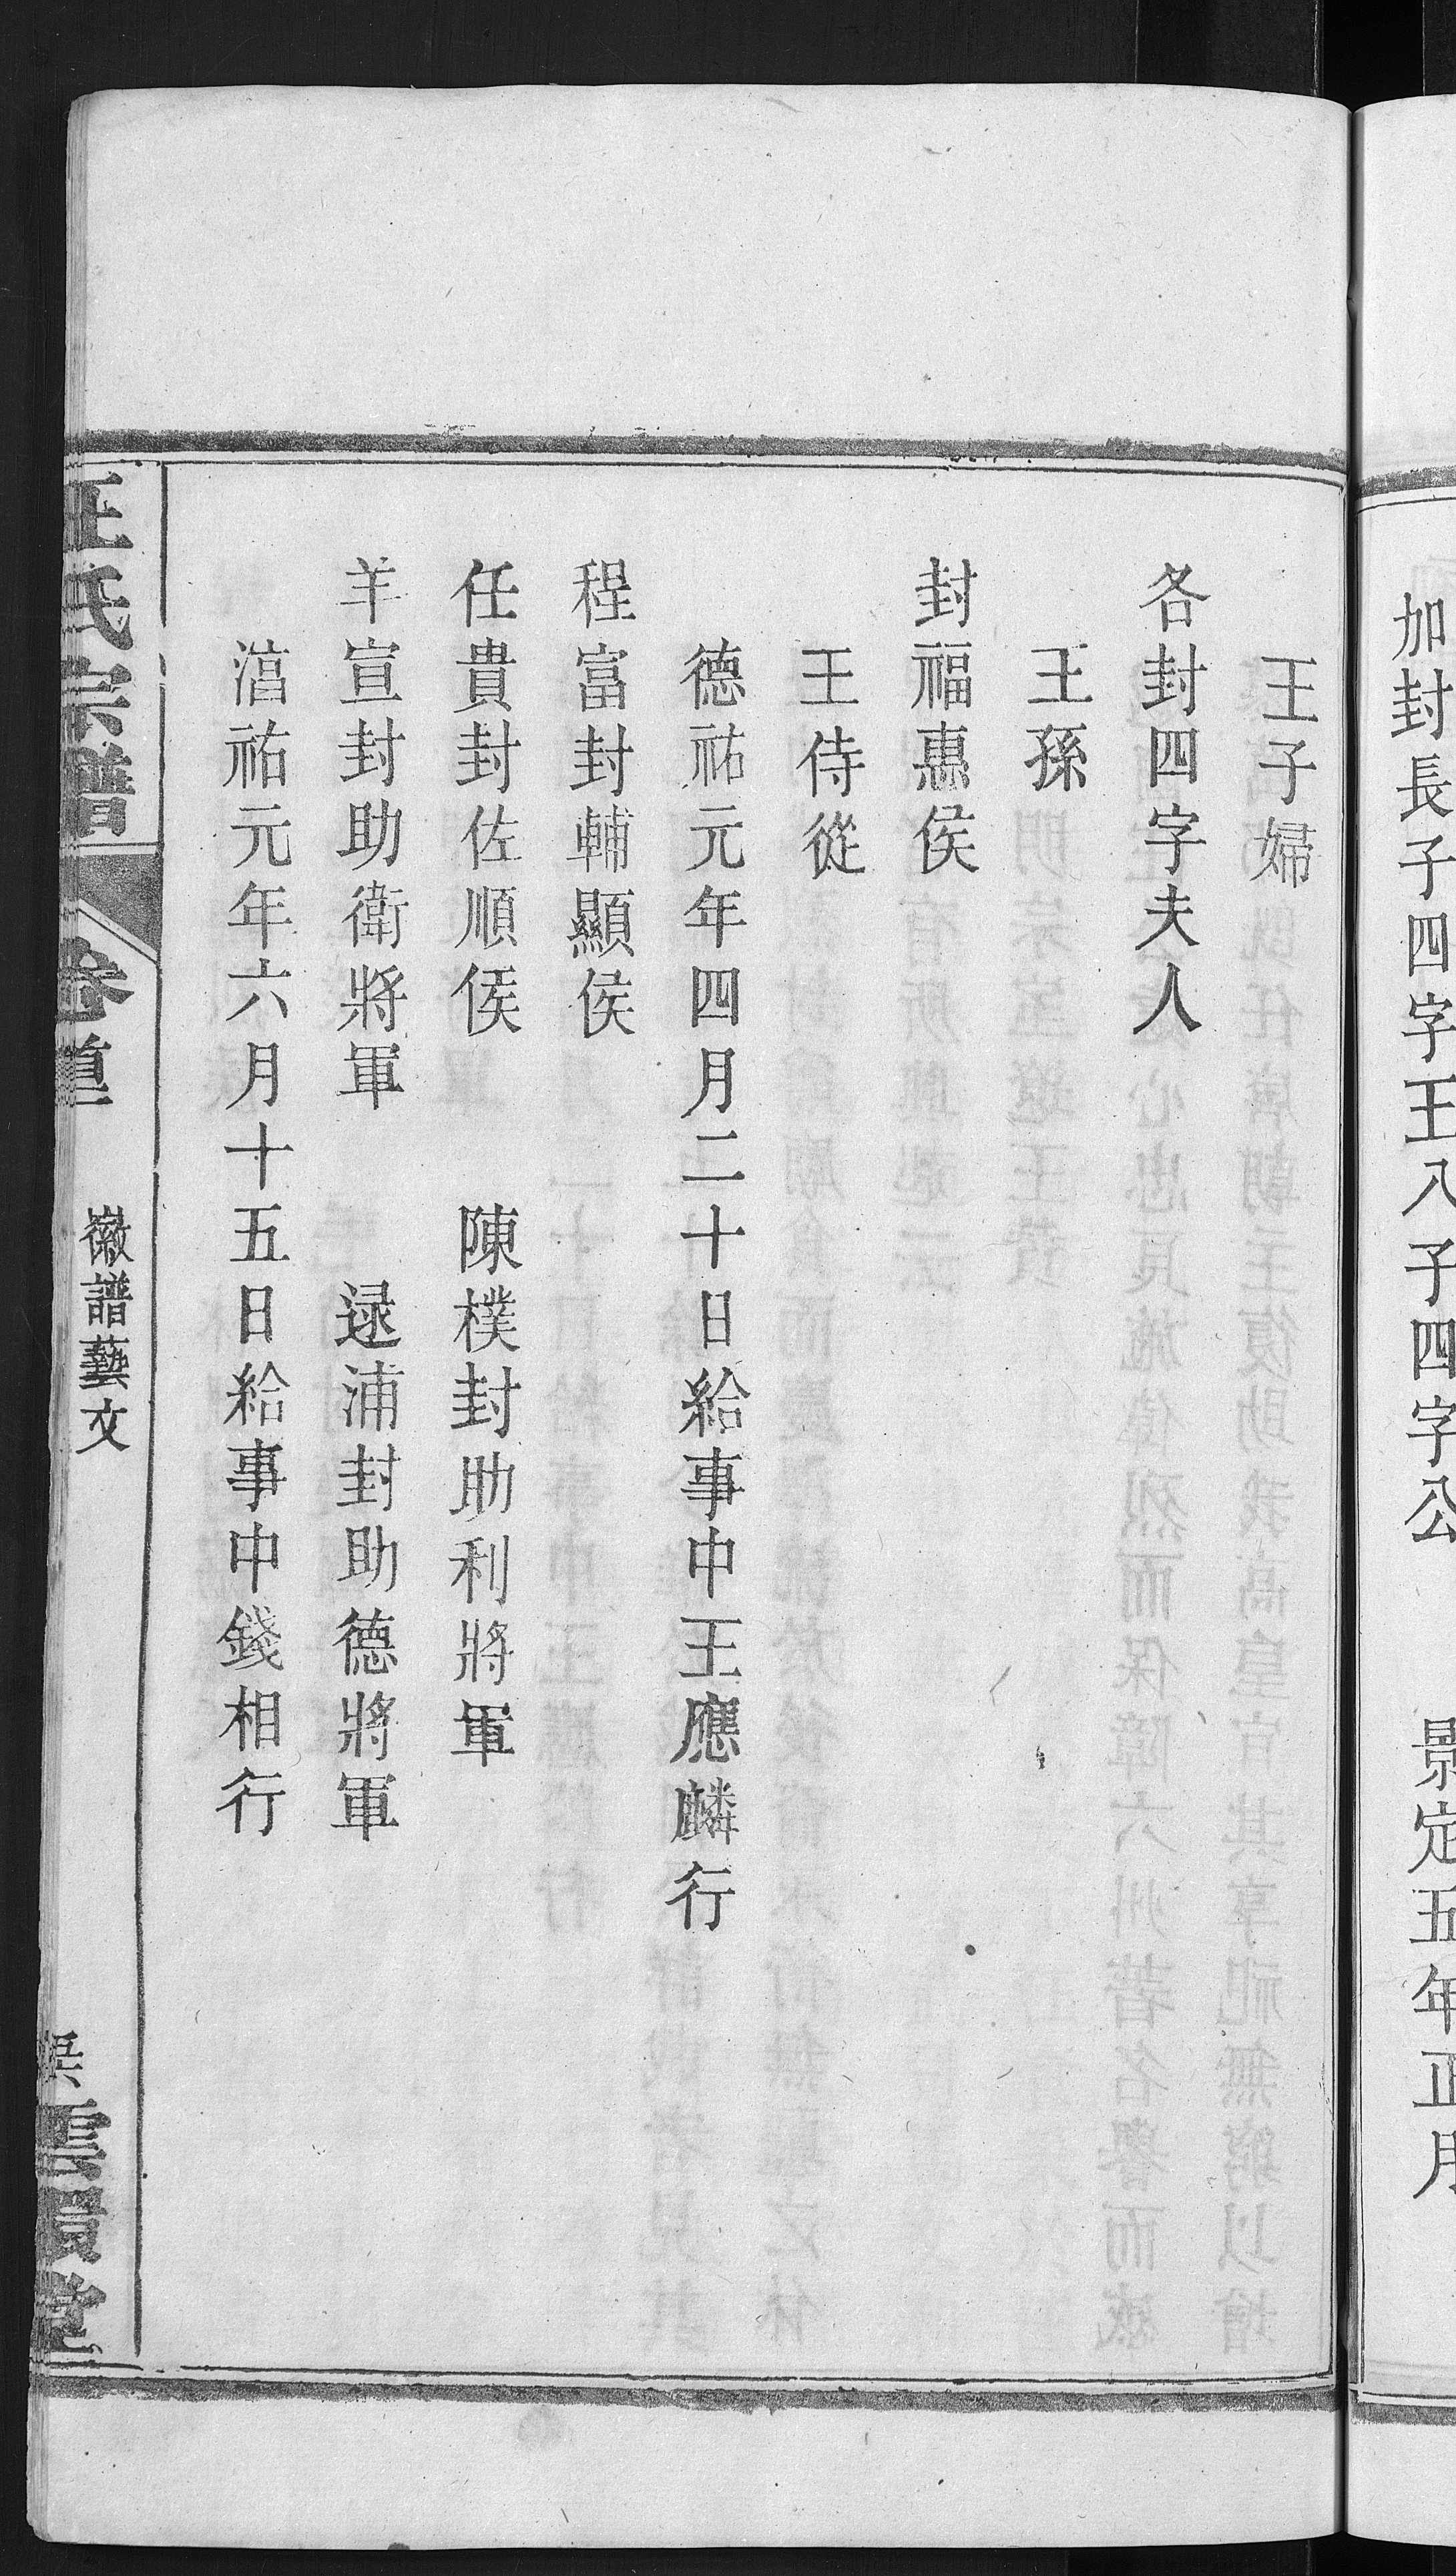 加封長子四字王八子四字公　景定五年正月
王子婦
各封四字夫人
王孫
封福惠侯
王侍從
德祐元年四月二十日給事中王應麟行
程富封輔顯侯
任貴封佐順侯　陳樸封助利將軍
羊宣封助衛將軍　逯浦封助德將軍
湻祐元年六月十五日給事中錢相行
汪氏宗譜
卷首
徽譜藝文